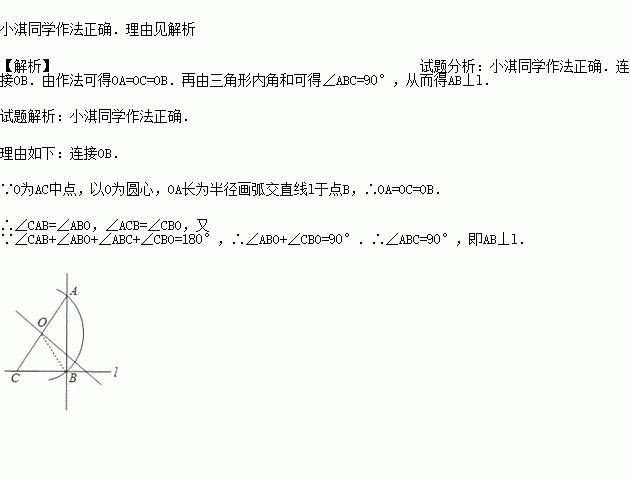 小淇同学作法正确．理由见解析
【解析】 试题分析：小淇同学作法正确．连
接OB．由作法可得OA=OC=OB．再由三角形内角和可得∠ABC=90°，从而得AB⊥l．
试题解析：小淇同学作法正确．
理由如下：连接OB．
∵O为AC中点，以O为圆心，OA长为半径画弧交直线l于点B，∴OA=OC=OB．
∴∠CAB=∠ABO，∠ACB=∠CBO，又
∵∠CAB+∠ABO+∠ABC+∠CBO=180°，∴∠ABO+∠CBO=90°．∴∠ABC=90°，即AB⊥l．
A
O
C B l